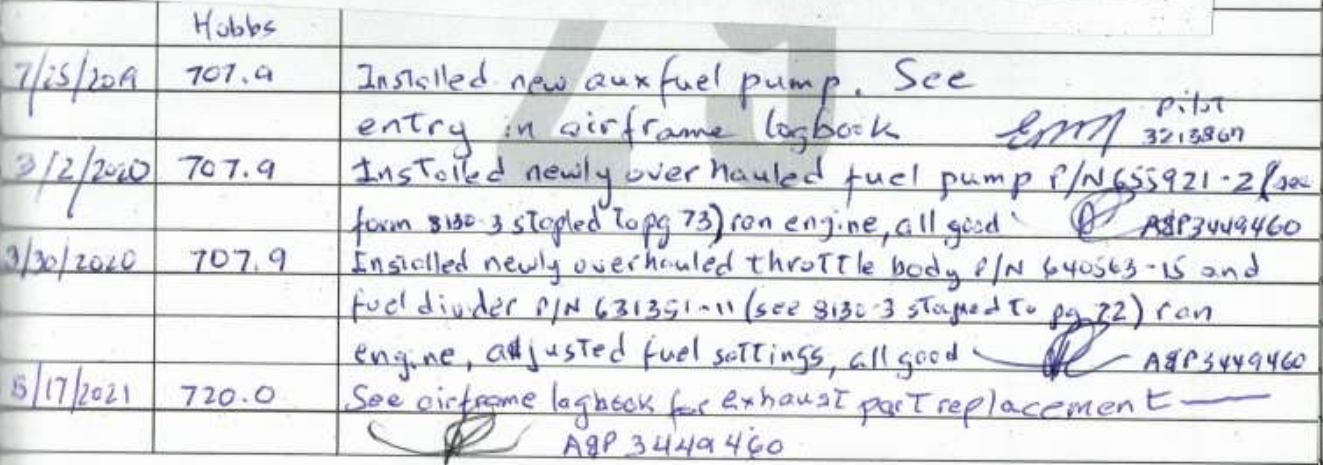 Hobbs
7/25/2019 707.9 Installed new aux fuel pump. See
entry in airframe logbook pilot
3213867
3/2/2020 707.9 Installed newly overhauled fuel pump P/N 655921-2 (see
form 8130-3 stapled to pg 73) ran engine, all good A&P3449460
3/30/2020 707.9 Installed newly overhauled throttle body P/N 640563-15 and
fuel divider P/N 631351-11 (see 8130-3 stapled to pg 72) ran
engine, adjusted fuel settings, all good A&P3449460
5/17/2021 720.0 See airframe logbook for exhaust part replacement
A&P 3449460